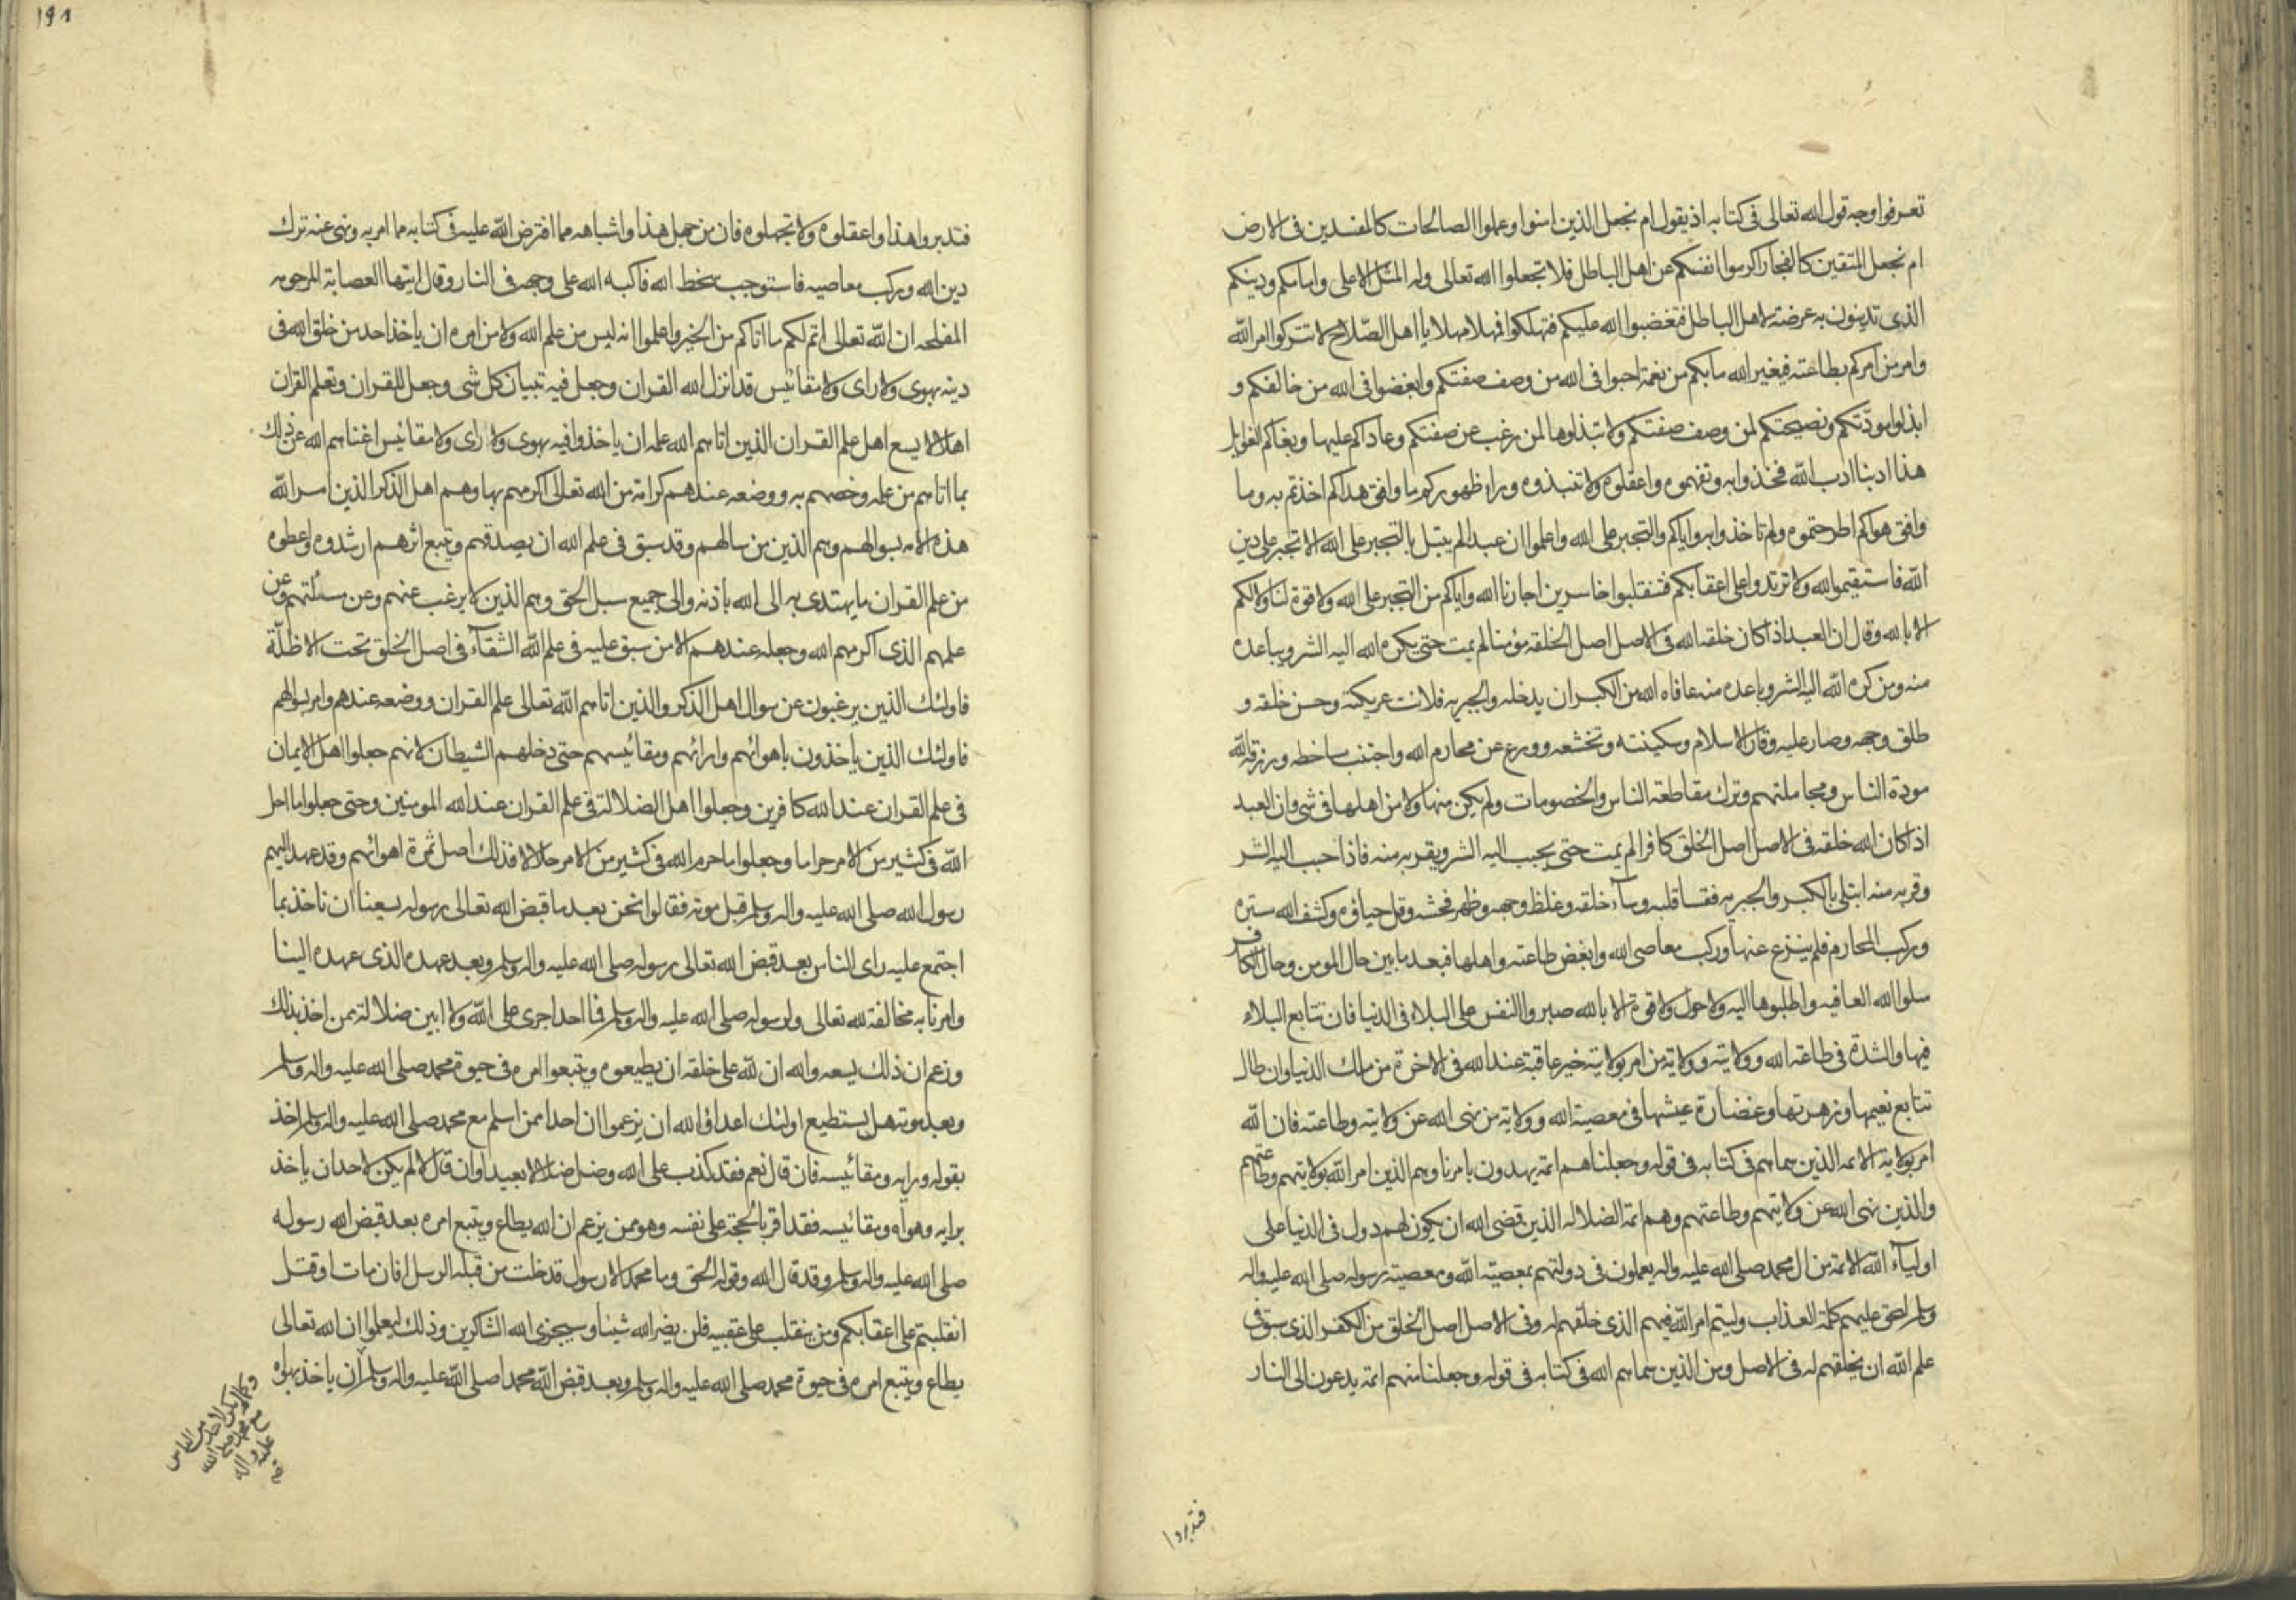 تعرفوا وجه قول الله تعالى فى كتابه اذ يقول ام نجعل الذين امنوا وعملوا الصالحات كالمفسدين فى الارض
ام نجعل المتقين كالفجار اكرموا انفسكم عن اهل الباطل فلا تجعلوا الله تعالى وله المثل الاعلى وامامكم ودينكم
الذى تدينون به عرضة لاهل الباطل فتغضبوا الله عليكم فتهلكوا فمهلا مهلا يا اهل الصلاح لا تتركوا امر الله
وامر من امركم بطاعته فيغير الله ما بكم من نعمة احبوا فى الله من وصف صفتكم وابغضوا فى الله من خالفكم و
ابذلوا مودتكم ونصيحتكم لمن وصف صفتكم ولا تبذلوها لمن رغب عن صفتكم وعاداكم عليها وبغاكم الغوايل
هذا ادبنا ادب الله فخذوا به وتفهموه واعقلوه ولا تنبذوه وراء ظهوركم ما وافق هداكم اخذتم به وما
وافق هواكم اطرحتموه ولم تاخذوا به واياكم والتجبر على الله واعلموا ان عبدا لم يبتل بالتجبر على الله الا تجبر على دين
الله فاستقيموا لله ولا ترتدوا على اعقابكم فتنقلبوا خاسرين اجارنا الله واياكم من التجبر على الله ولا قوة لنا ولا لكم
الا بالله وقال ان العبد اذا كان خلقه الله فى الاصل اصل الخلقه مؤمنا لم يمت حتى يكره الله اليه الشر ويباعده
منه ومن كره الله اليه الشر وباعده منه عافاه الله من الكبر ان يدخله والجبريه فلانت عريكته وحسن خلقه و
طلق وجهه وصار عليه وقار الاسلام وسكينته وتخشعه وورع عن محارم الله واجتنب مساخطه ورزقه الله
مودة الناس ومجاملتهم وترك مقاطعة الناس والخصومات ولم يكن منها ولا من اهلها فى شى وان العبد
اذا كان الله خلقه فى الاصل اصل الخلق كافرا لم يمت حتى يحبب اليه الشر ويقربه منه فاذا حبب اليه الشر
وقربه منه ابتلى بالكبر والجبريه فقسا قلبه وساء خلقه وغلظ وجهه وظهر فحشه وقل حياؤه وكشف الله ستره
وركب المحارم فلم ينزع عنها وركب معاصى الله وابغض طاعته واهلها فبعد ما بين حال المومن وحال الكافر
سلوا الله العافيه واطلبوها اليه ولا حول ولا قوة الا بالله صبروا النفس على البلاء فى الدنيا فان تتابع البلاء
فيها والشدة فى طاعة الله وولايته وولاية من امر بولايته خير عاقبة عند الله فى الاخرة من ملك الدنيا وان طال
تتابع نعيمها وزهرتها وغضارة عيشها فى معصية الله وولاية من نهى الله عن ولايته وطاعته فان الله
امر بولاية الائمه الذين سماهم فى كتابه فى قوله وجعلناهم ائمة يهدون بامرنا وهم الذين امر الله بولايتهم وطاعتهم
والذين نهى الله عن ولايتهم وطاعتهم وهم ائمة الضلاله الذين قضى الله ان يكون لهم دول فى الدنيا على
اولياء الله الائمة من ال محمد صلى الله عليه واله يعملون فى دولتهم بمعصية الله ومعصية رسوله صلى الله عليه واله
وسلم ليحق عليهم كلمة العذاب وليتم امر الله فيهم الذى خلقهم له وفى الاصل اصل الخلق من الكفر الذى سبق فى
علم الله ان يخلقهم له فى الاصل ومن الذين سماهم الله فى كتابه فى قوله وجعلنا منهم ائمة يدعون الى النار
فتدبروا
١٩١
فتدبروا هذا واعقلوه ولا تجهلوه فان من جهل هذا واشباهه مما افترض الله عليه فى كتابه مما امر به ونهى عنه ترك
دين الله وركب معاصيه فاستوجب سخط الله فاكبه الله على وجهه فى النار وقال ايتها العصابة المرحومه
المفلحه ان الله تعالى اتم لكم ما اتاكم من الخير واعلموا انه ليس من علم الله ولا من امره ان ياخذ احد من خلق الله فى
دينه بهوى ولا راى ولا مقائيس قد انزل الله القران وجعل فيه تبيان كل شى وجعل للقران وتعلم القران
اهلا لا يسع اهل علم القران الذين اتاهم الله علمه ان ياخذوا فيه بهوى ولا راى ولا مقائيس اغناهم الله عن ذلك
بما اتاهم من علمه وخصهم به ووضعه عندهم كرامة من الله تعالى اكرمهم بها وهم اهل الذكر الذين امر الله
هذه الامه بسوالهم وهم الذين من سالهم وقد سبق فى علم الله ان يصدقهم ويتبع اثرهم ارشدوه واعطوه
من علم القران ما يهتدى به الى الله باذنه والى جميع سبل الحق وهم الذين لا يرغب عنهم وعن مسئلتهم وعن
علمهم الذى اكرمهم الله وجعله عندهم الا من سبق عليه فى علم الله الشقاء فى اصل الخلق تحت الاظلة
فاولئك الذين يرغبون عن سوال اهل الذكر والذين اتاهم الله تعالى علم القران ووضعه عندهم وامر بسوالهم
فاولئك الذين ياخذون باهوائهم وارائهم ومقائيسهم حتى دخلهم الشيطان لانهم جعلوا اهل الايمان
فى علم القران عند الله كافرين وجعلوا اهل الضلالة فى علم القران عند الله المومنين وحتى جعلوا ما احل
الله فى كثير من الامر حراما وجعلوا ما حرم الله فى كثير من الامر حلالا فذلك اصل ثمرة اهوائهم وقد عهد اليهم
رسول الله صلى الله عليه واله وسلم قبل موته فقالوا نحن بعد ما قبض الله تعالى رسوله يسعنا ان ناخذ بما
اجتمع عليه راى الناس بعد قبض الله تعالى رسوله صلى الله عليه واله وسلم وبعد عهده الذى عهده الينا
وامرنا به مخالفة لله تعالى ولرسوله صلى الله عليه واله وسلم فما احد اجرى على الله ولا ابين ضلالة ممن اخذ بذلك
وزعم ان ذلك يسعه والله ان لله على خلقه ان يطيعوه ويتبعوا امره فى حيوة محمد صلى الله عليه واله وسلم
وبعد موته هل يستطيع اولئك اعداؤ الله ان يزعموا ان احدا ممن اسلم مع محمد صلى الله عليه واله وسلم اخذ
بقوله ورايه ومقائيسه فان قال نعم فقد كذب على الله وضل ضلالا بعيدا وان قال لا لم يكن لاحد ان ياخذ
برايه وهواه ومقائيسه فقد اقر بالحجة على نفسه وهو ممن يزعم ان الله يطاع ويتبع امره بعد قبض الله رسوله
صلى الله عليه واله وسلم وقد قال الله وقوله الحق وما محمد الا رسول قد خلت من قبله الرسل افان مات او قتل
انقلبتم على اعقابكم ومن ينقلب على عقبيه فلن يضر الله شيئا وسيجزى الله الشاكرين وذلك ليعلموا ان الله تعالى
يطاع ويتبع امره فى حيوة محمد صلى الله عليه واله وسلم وبعد قبض الله محمدا صلى الله عليه واله وسلم ان ياخذ بهواه
وكما لم يكن لاحد من الناس
مع محمد صلى الله
عليه واله